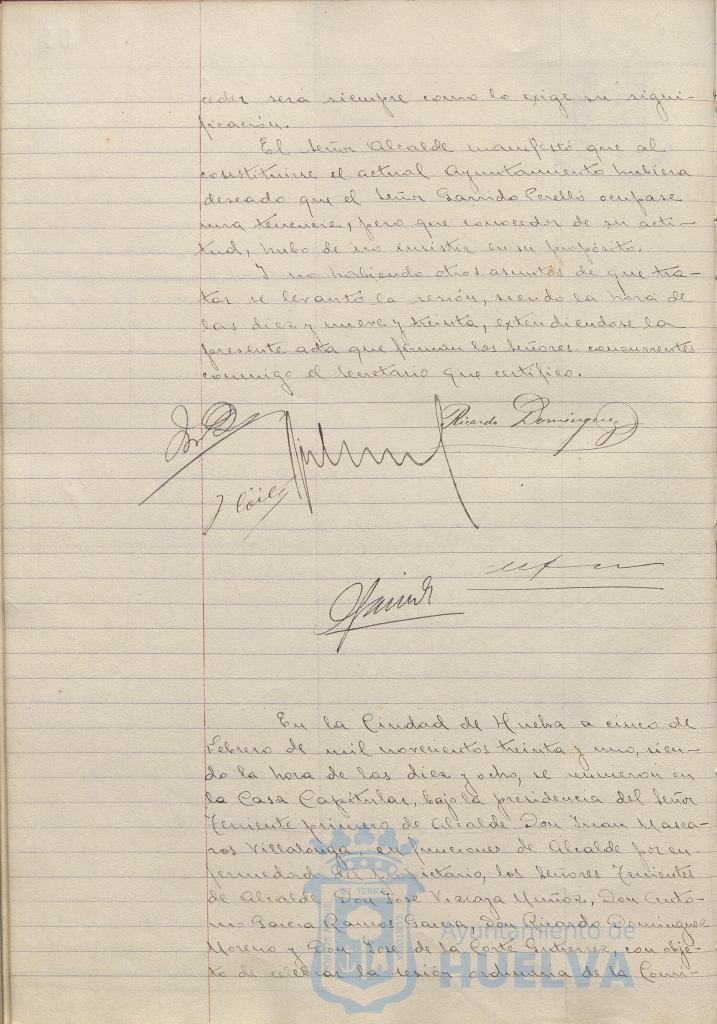 ceder será siempre como lo exige su signi-
ficación.
El Señor Alcalde manifestó que al
constituirse el actual Ayuntamiento hubiera
deseado que el Señor Garrido Perelló ocupase
una tenencia, pero que conocedor de su acti-
tud, hubo de no insistir en su propósito.
Y no habiendo otros asuntos de que tra-
tar se levantó la sesión, siendo la hora de
las diez y nueve y treinta, extendiéndose la
presente acta que firman los Señores concurrentes
conmigo el Secretario que certifico.
Ricardo Dominguez
En la Ciudad de Huelva a cinco de
Febrero de mil novecientos treinta y uno, sien-
do la hora de las diez y ocho, se reunieron en
la Casa Capitular, bajo la presidencia del Señor
Teniente primero de Alcalde Don Juan Masca-
ros Villalonga, en funciones de Alcalde por en-
fermedad del propietario, los Señores Tenientes
de Alcalde Don José Vizcaya Muñoz, Don Anto-
nio Garcia Ramos Garcia, Don Ricardo Dominguez
Moreno y Don José de la Corte Gutierrez, con obje-
to de celebrar la sesión ordinaria de la Comi-
Ayuntamiento de
HUELVA